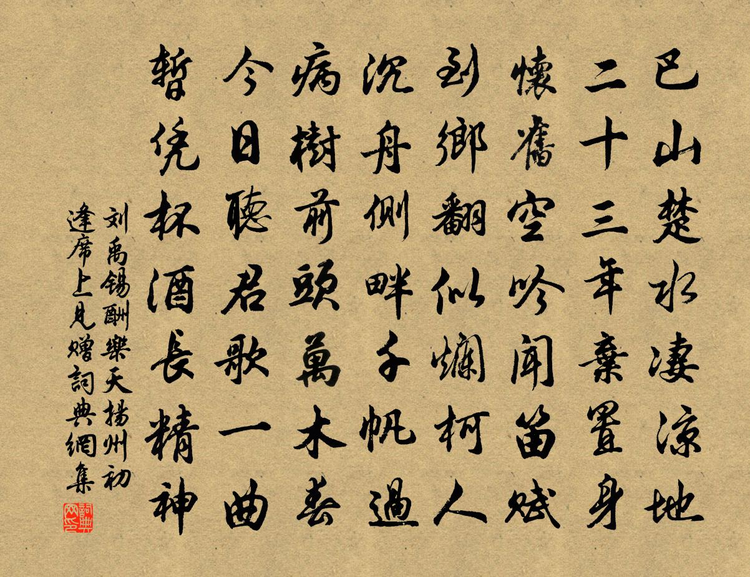 巴山楚水凄涼地
二十三年棄置身
懷舊空吟聞笛賦
到鄉翻似爛柯人
沉舟側畔千帆過
病樹前頭萬木春
今日聽君歌一曲
暫凭杯酒長精神
刘禹锡酬樂天揚州初
逢席上見贈詞典網集
詞典网印